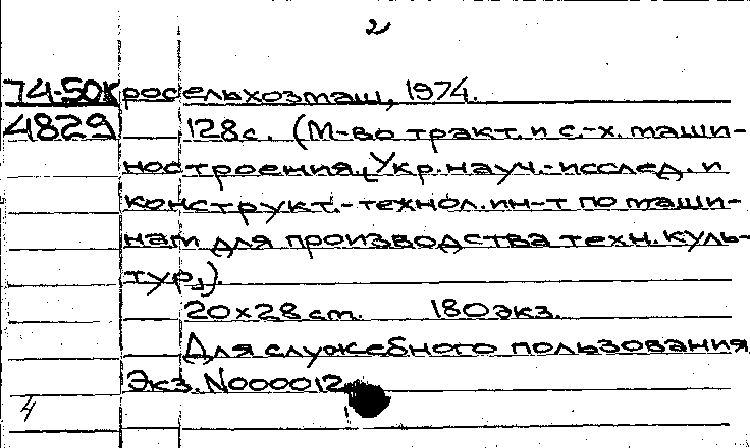 2
74-50к росельхозмаш, 1974.
4829 128с. (М-во тракт. и с.-х. маши-
ностроения. [Укр. науч.-исслед. и
конструкт.-технол. ин-т по маши-
нам для производства техн. куль-
тур]).
20х28 см. 180 экз.
Для служебного пользования
Экз. N000012
4